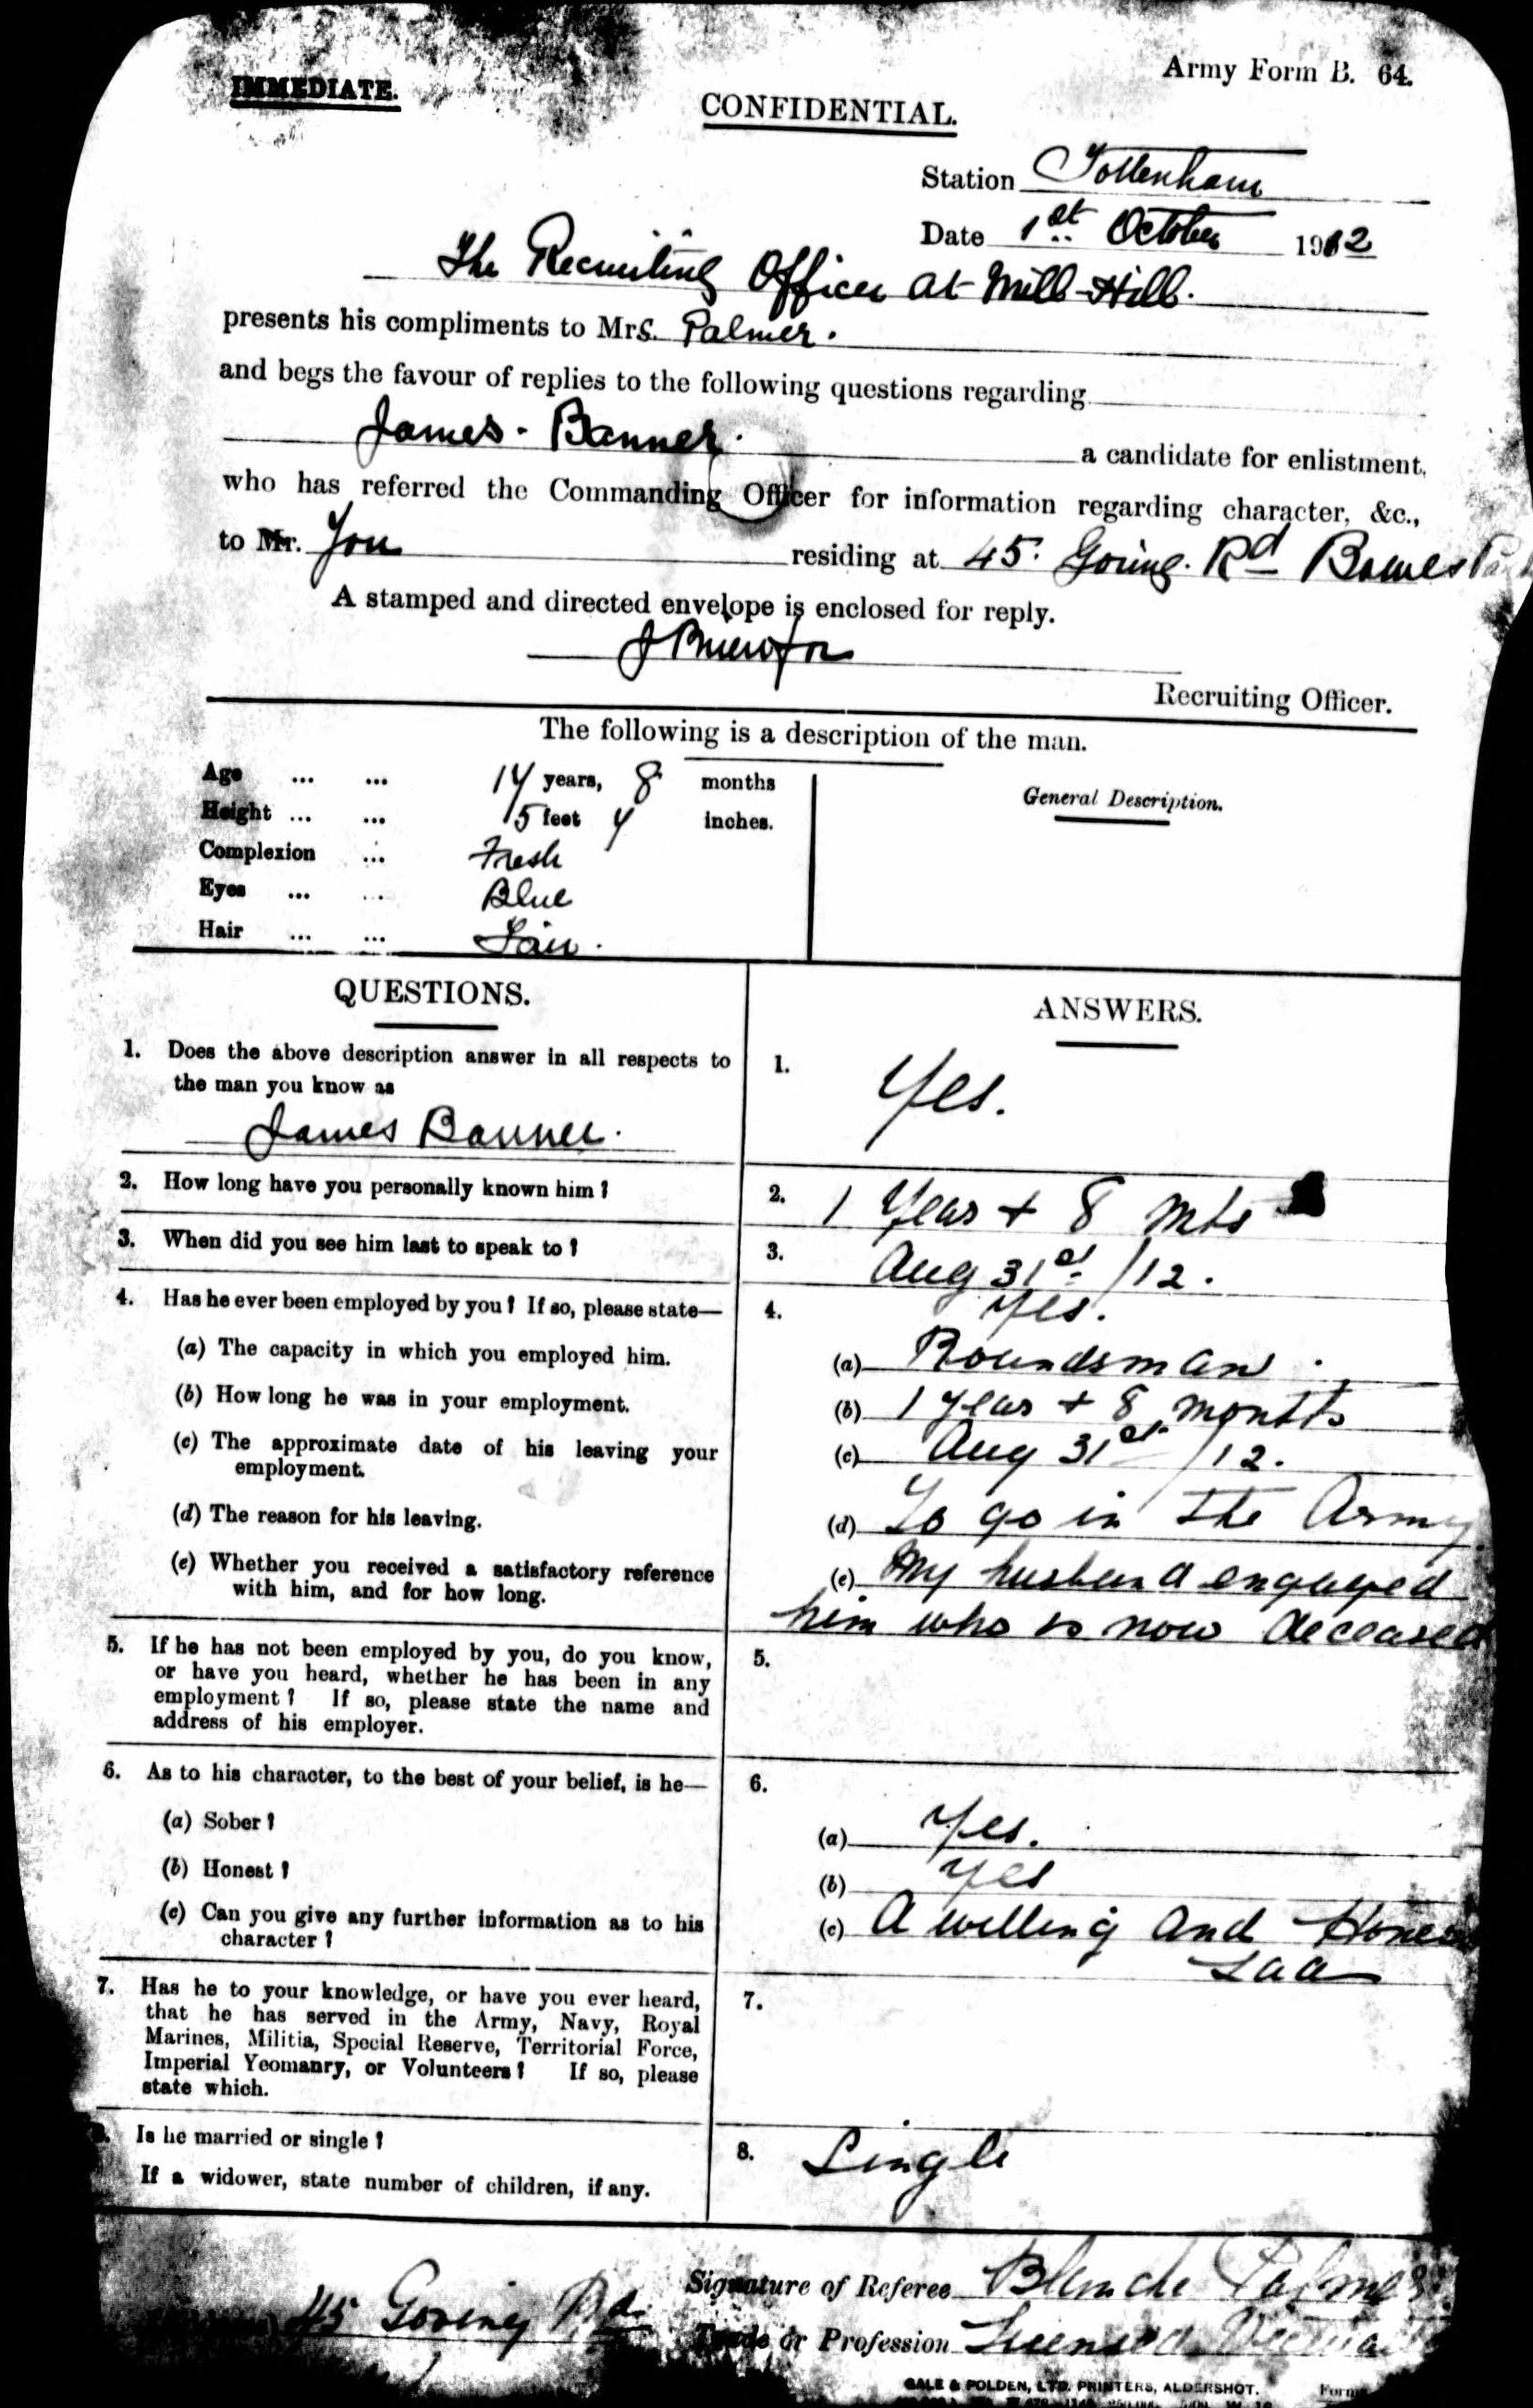 IMMEDIATE.
Army Form B. 64.
CONFIDENTIAL.
Station Tottenham
Date 1st October 1912
The Recruiting Officer at Mill-Hill.
presents his compliments to Mrs. Palmer.
and begs the favour of replies to the following questions regarding
James Banner.
a candidate for enlistment,
who has referred the Commanding Officer for information regarding character, &c.,
to Mr. You residing at 45. Goring. Rd Bowes
A stamped and directed envelope is enclosed for reply.
Recruiting Officer.
The following is a description of the man.
Age ... ... years, 8 months
Height ... ... 5 feet 4 inches.
Complexion ... Fresh
Eyes ... ... Blue
Hair ... ... Fair.
General Description.
QUESTIONS.
ANSWERS.
1. Does the above description answer in all respects to
the man you know as
James Banner.
1. Yes.
2. How long have you personally known him?
2. 1 Year + 8 Mts
3. When did you see him last to speak to?
3. Aug 31st /12.
4. Has he ever been employed by you? If so, please state—
4. Yes.
(a) The capacity in which you employed him.
(a) Roundsman.
(b) How long he was in your employment.
(b) 1 year + 8 months
(c) The approximate date of his leaving your
employment.
(c) Aug 31st /12.
(d) The reason for his leaving.
(d) To go in the Army
(e) Whether you received a satisfactory reference
with him, and for how long.
(e) My husband engaged
him who is now deceased
5. If he has not been employed by you, do you know,
or have you heard, whether he has been in any
employment? If so, please state the name and
address of his employer.
5.
6. As to his character, to the best of your belief, is he—
6.
(a) Sober?
(a) Yes.
(b) Honest?
(b) Yes
(c) Can you give any further information as to his
character?
(c) A willing and Honest
Lad
7. Has he to your knowledge, or have you ever heard,
that he has served in the Army, Navy, Royal
Marines, Militia, Special Reserve, Territorial Force,
Imperial Yeomanry, or Volunteers? If so, please
state which.
7.
Is he married or single?
If a widower, state number of children, if any.
8. Single
Signature of Referee Blanche Palmer
45 Goring Rd
Trade or Profession Licensed
GALE & POLDEN, LTD. PRINTERS, ALDERSHOT.
Forms